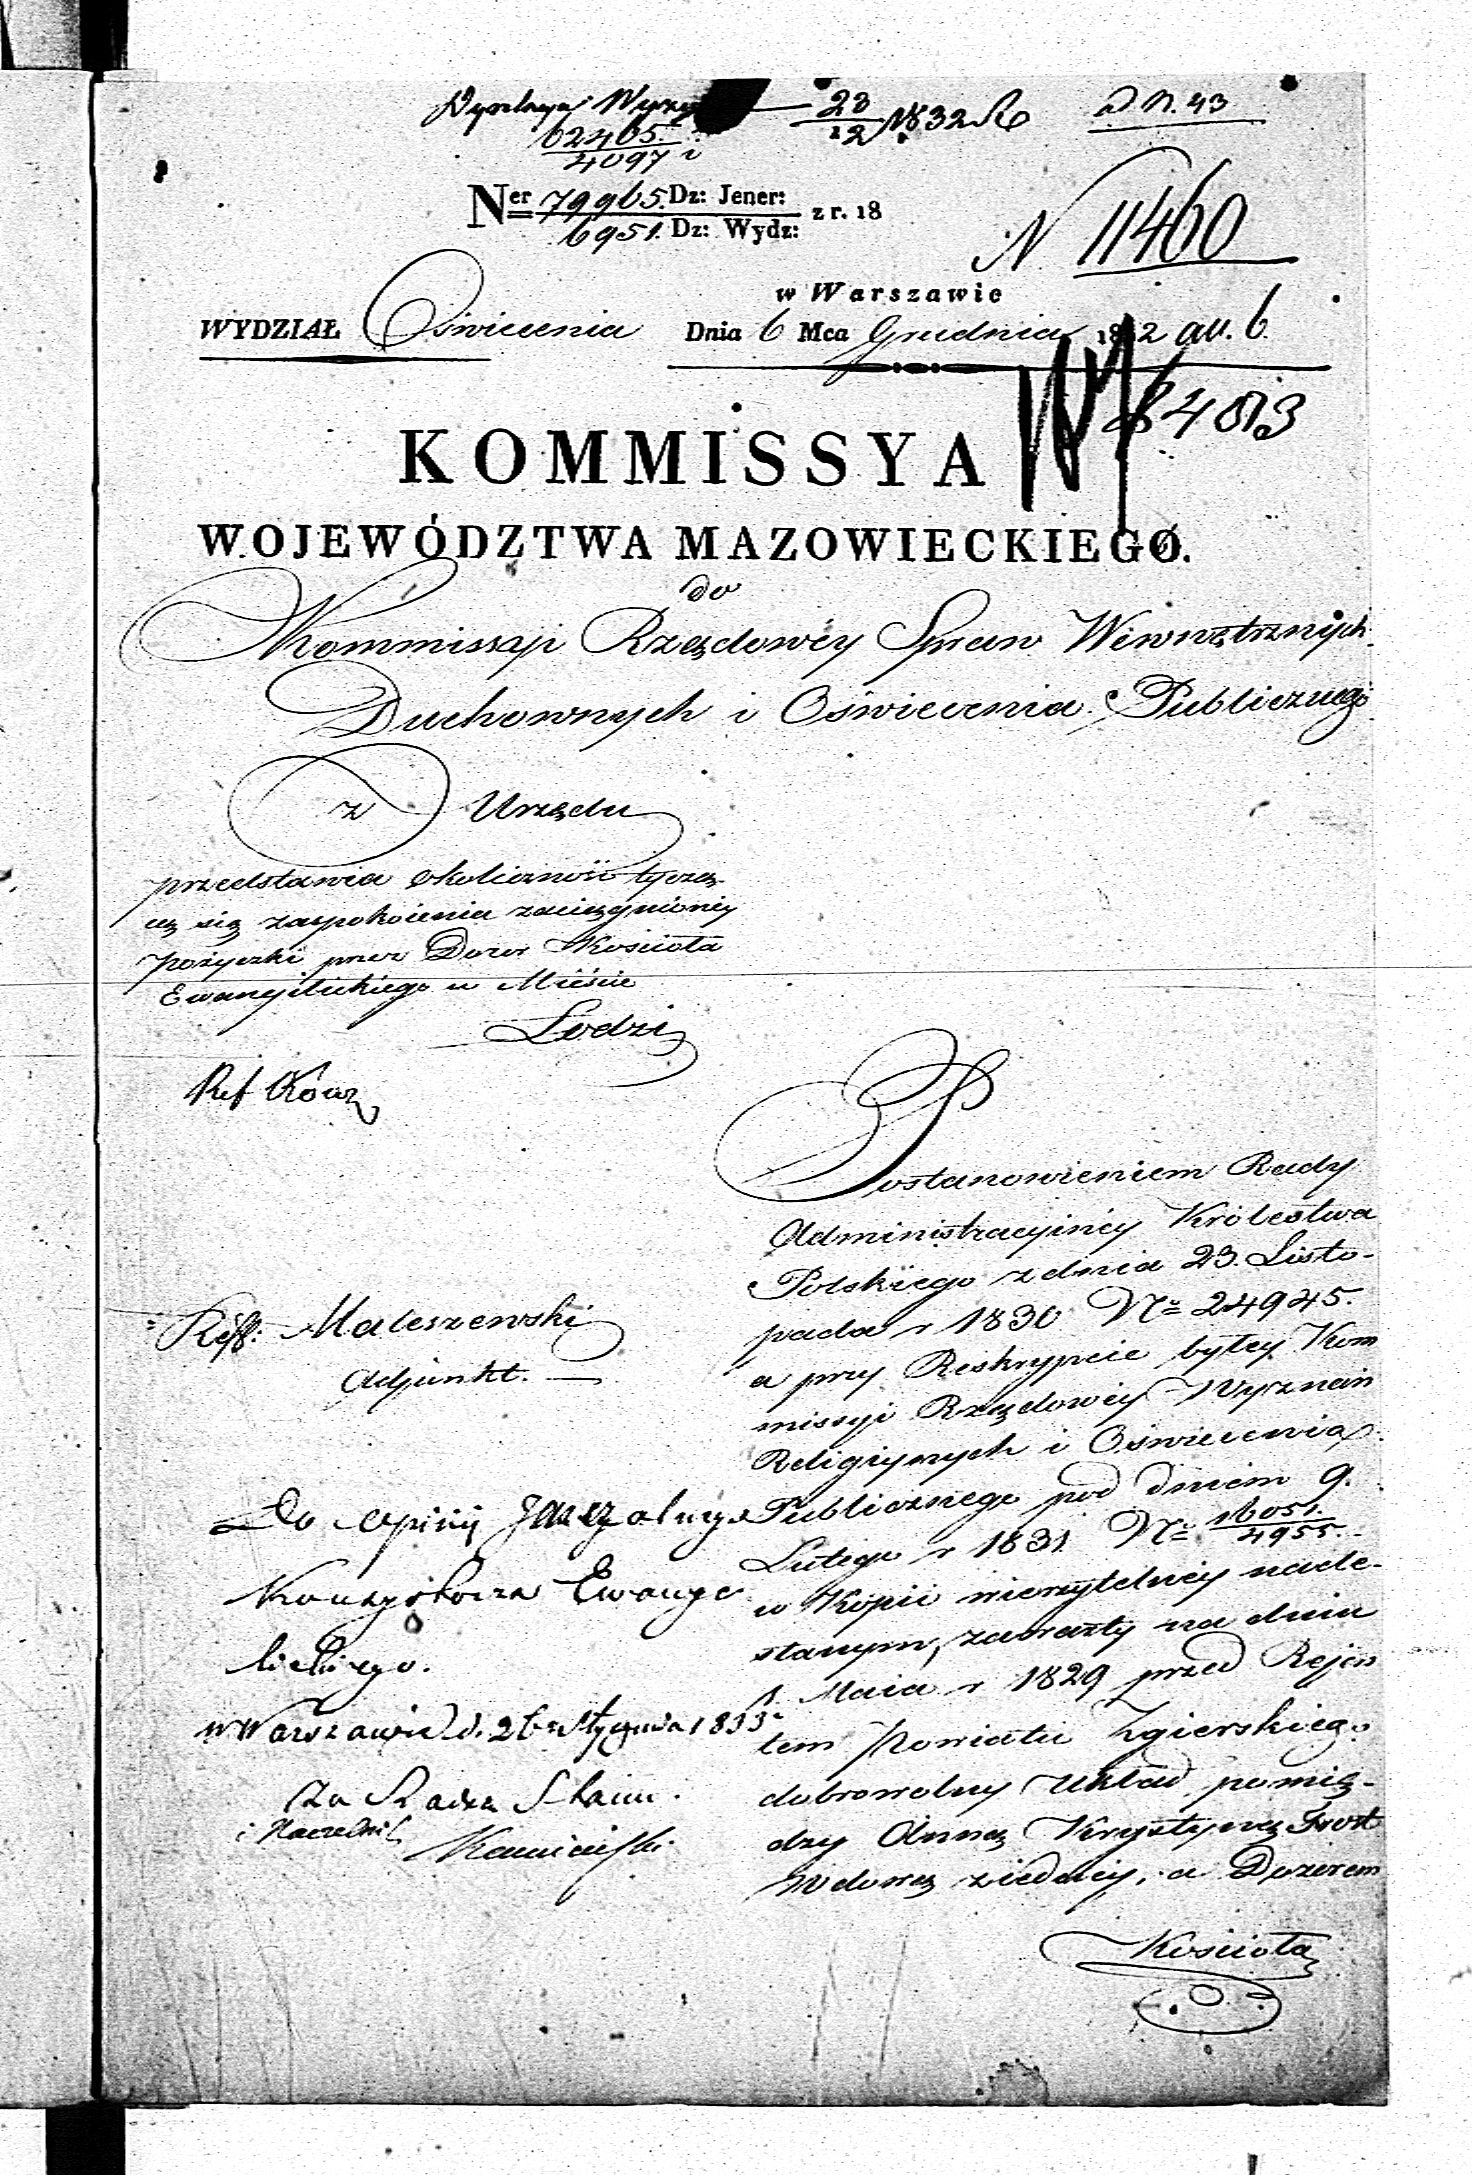 23/12 1832 R
ad N. 43
62465.
4097
Ner 79965. Dz: Jener: z r. 18
6951. Dz: Wydz:
N 11460
w Warszawie
WYDZIAŁ Oświecenia Dnia 6 Mca Grudnia 1832
KOMMISSYA
WOJEWÓDZTWA MAZOWIECKIEGO.
do
Kommissyi Rządowéy Spraw Wewnętrznych
Duchownych i Oświecenia Publicznego
z Urzędu
przedstawia okoliczność tyczą
cą się zaspokoienia zaciągnioney
pożyczki przez Dozor Kościoła
Ewanjelickiego w Mieście
Lodzi
Ref
Reff: Maleszewski
Adjunkt.
Postanowieniem Rady
Administracyinéy Królestwa
Polskiego z dnia 23. Listo-
pada r 1830 No 24945.
a przy Reskrypcie byłey Kom
missyi Rządowéy Wyznań
Religiynych i Oświecenia
Publicznego pod dniem 9.
Lutego r 1831 No 16051./4955.
w Kopii wierzytelnéy nade-
słanym, zawarty na dniu
1. Maia r 1829 przed Rejen
tem Powiatu Zgierskiego
dobrowolny układ pomię-
dzy Anną Krystyną Frost
Wdową z iednéy, a Dozorem
Kościoła
Do opinij Jeneralnego
Konsystorza Ewange
lickiego.
w Warszawie d. 26 Stycznia 1833
Za Radca Stanu.
i Naczelnik